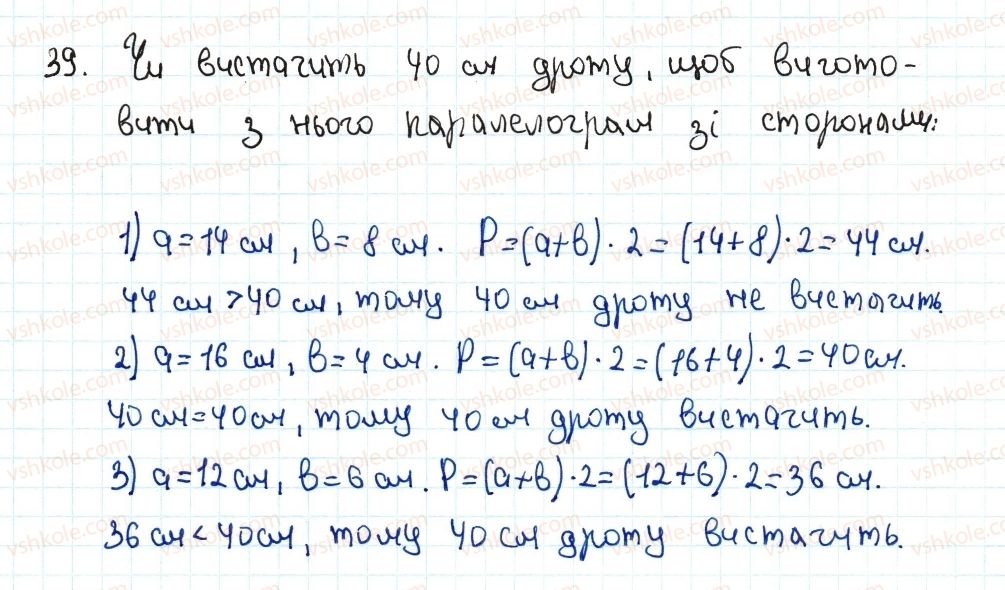 39. Чи вистачить 40 см дроту, щоб вигото-
вити з нього паралелограм зі сторонами:
1) a=14 см, b=8 см. P=(a+b)·2=(14+8)·2=44 см.
44 см>40 см, тому 40 см дроту не вистачить.
2) a=16 см, b=4 см. P=(a+b)·2=(16+4)·2=40см.
40см=40см, тому 40 см дроту вистачить.
3) a=12см, b=6 см. P=(a+b)·2=(12+6)·2=36 см.
36 см<40см, тому 40 см дроту вистачить.